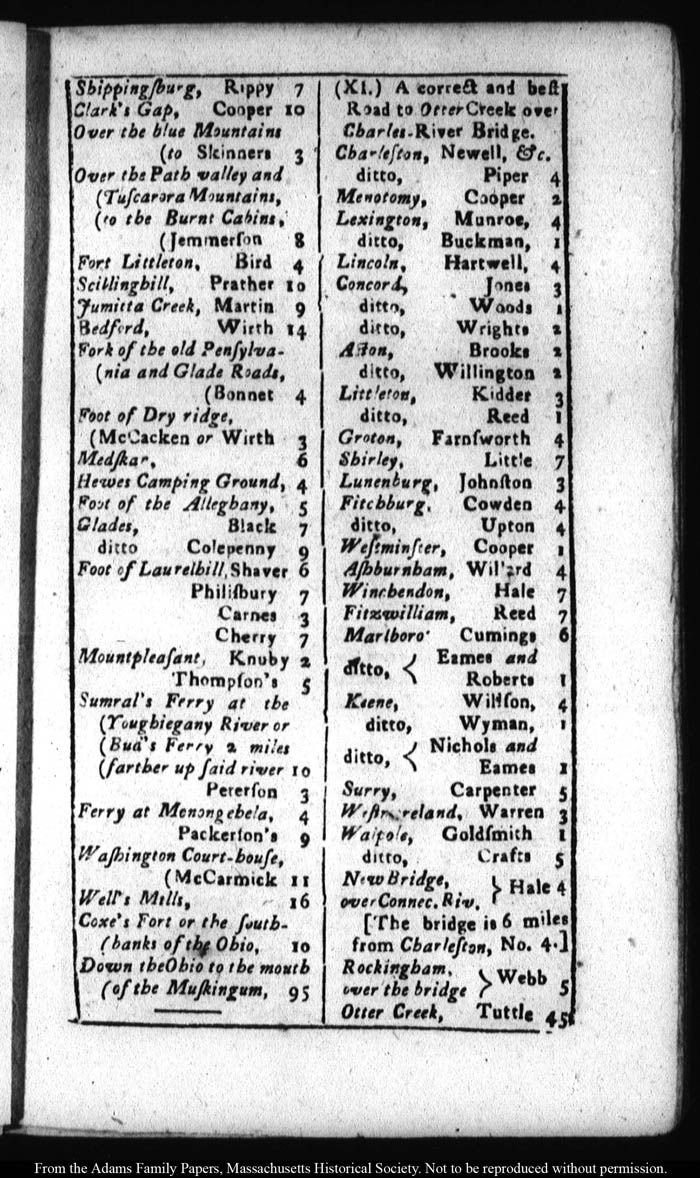 Shippingſburg, Rippy 7
Clark's Gap, Cooper 10
Over the blue Mountains
(to Skinners 3
Over the Path valley and
(Tuſcarora Mountains,
(to the Burnt Cabins,
(Jemmerſon 8
Fort Littleton, Bird 4
Scitlinghill, Prather 10
Jumitta Creek, Martin 9
Bedford, Wirth 14
Fork of the old Penſylva-
(nia and Glade Roads,
(Bonnet 4
Foot of Dry ridge,
(McCacken or Wirth 3
Medſkar, 6
Hewes Camping Ground, 4
Foot of the Alleghany, 5
Glades, Black 7
ditto Colepenny 9
Foot of Laurelhill, Shaver 6
Philiſbury 7
Carnes 3
Cherry 7
Mountpleaſant, Knuby 2
Thompſon's 5
Sumral's Ferry at the
(Youghiegany River or
(Bud's Ferry 2 miles
(farther up ſaid river 10
Peterſon 3
Ferry at Menongehela, 4
Packerſon's 9
Waſhington Court-houſe,
(McCarmick 11
Well's Mills, 16
Coxe's Fort or the ſouth-
(banks of the Ohio, 10
Down the Ohio to the mouth
(of the Muſkingum, 95
(XI.) A correct and beſt
Road to Otter Creek over
Charles-River Bridge.
Charleſton, Newell, &c.
ditto, Piper 4
Menotomy, Cooper 2
Lexington, Munroe, 4
ditto, Buckman, 1
Lincoln, Hartwell, 4
Concord, Jones 3
ditto, Woods 1
ditto, Wrights 2
Acton, Brooks 2
ditto, Willington 2
Littleton, Kidder 3
ditto, Reed 1
Groton, Farnſworth 4
Shirley, Little 7
Lunenburg, Johnſton 3
Fitchburg, Cowden 4
ditto, Upton 4
Weſtminſter, Cooper 1
Aſhburnham, Willard 4
Winchendon, Hale 7
Fitzwilliam, Reed 7
Marlboro' Cumings 6
ditto, { Eames and
Roberts 1
Keene, Willſon, 4
ditto, Wyman, 1
ditto, { Nichols and
Eames 1
Surry, Carpenter 5
Weſtmoreland, Warren 3
Walpole, Goldſmith 1
ditto, Crafts 5
New Bridge,
over Connec. Riv. } Hale 4
[The bridge is 6 miles
from Charleſton, No. 4.]
Rockingham,
over the bridge } Webb 5
Otter Creek, Tuttle 45
From the Adams Family Papers, Massachusetts Historical Society. Not to be reproduced without permission.